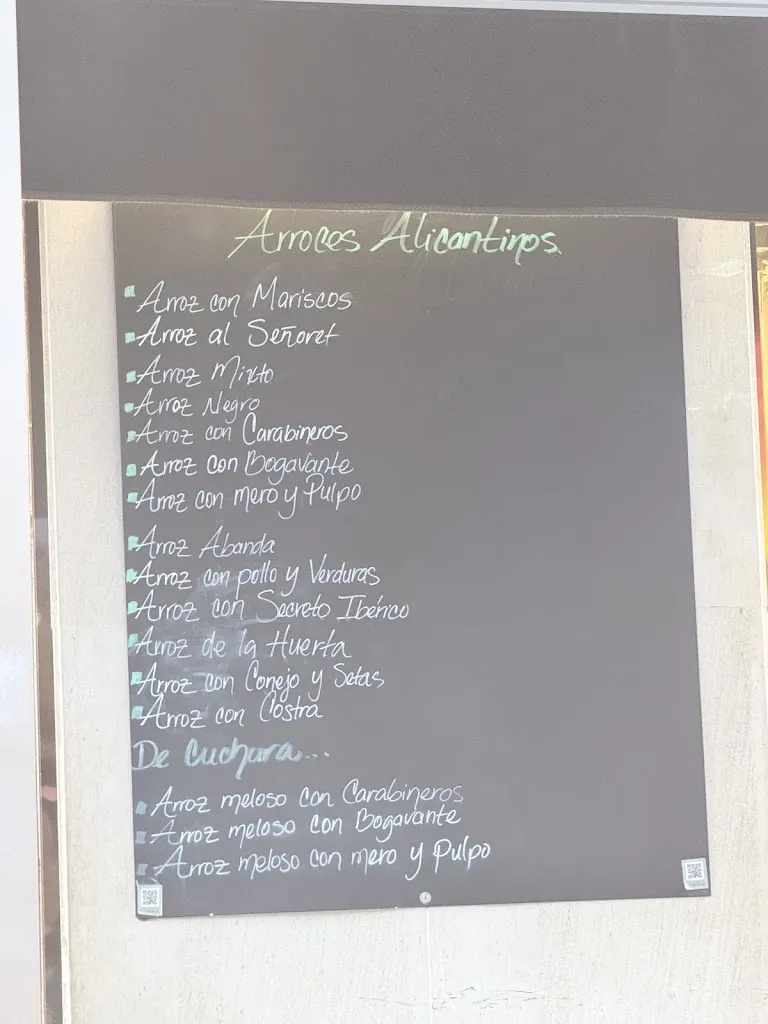 Arroces Alicantinos.
Arroz con Mariscos
Arroz al Señoret
Arroz Mixto
Arroz Negro
Arroz con Carabineros
Arroz con Bogavante
Arroz con mero y Pulpo
Arroz Abanda
Arroz con pollo y Verduras
Arroz con Secreto Ibérico
Arroz de la Huerta
Arroz con Conejo y Setas
Arroz con Costra
De Cuchara...
Arroz meloso con Carabineros
Arroz meloso con Bogavante
Arroz meloso con mero y Pulpo